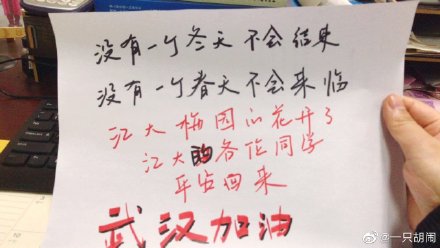 没有一个冬天不会结束
没有一个春天不会来临
江大梅园的花开了
江大的各位同学
平安回来
武汉加油
@一只胡闹